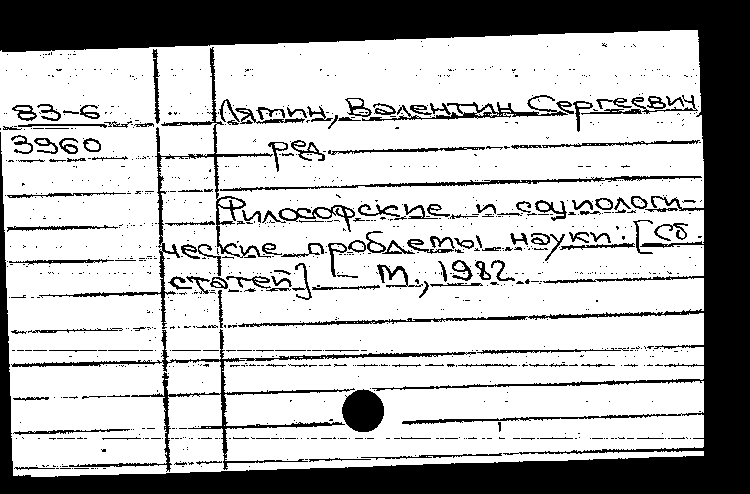 83-6
Лямин, Валентин Сергеевич,
3960
ред.
Философские и социологи-
ческие проблемы науки: [Сб.
статей] – М., 1982.